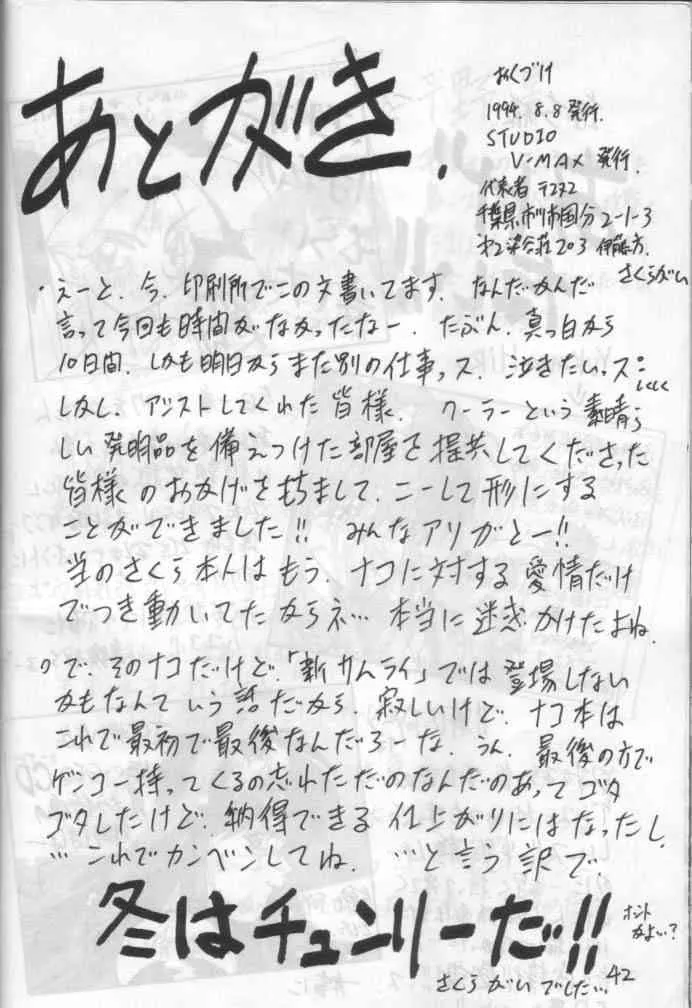 あとがき.
おくづけ
1994.8.8発行.
STUDIO
V-MAX 発行.
代表者 テヌヌ
千葉県市川市国分2-1-3
染谷荘203 伊藤方.
さくらがい
・えーと、今、印刷所でこの文書いてます、なんだかんだ
言って今回も時間がなかったなー、たぶん、真っ白から
10日間、しかも明日からまた別の仕事っス、泣きたいっス…
しくしく
しかし、アシストしてくれた皆様、クーラーという素晴ら
しい発明品を備えつけた部屋を提供してくださった
皆様のおかげを持ちまして、こーして形にする
ことができました!! みんなアリがとー!!
当のさくら本人はもう、ナコに対する愛情だけ
でつき動いてたからネ… 本当に迷惑かけたよね.
○で、そのナコだけど、「新サムライ」では登場しない
かもなんていう話だから、寂しいけど、ナコ本は
これで最初で最後なんだろーな、うん、最後の方で
ゲンコー持ってくるの忘れただのなんだのあってゴタ
ゴタしたけど、納得できる仕上がりにはなったし、
…これでカンベンしてね、 …と言う訳で
冬はチュンリーだっ!!
ホント
かよい?
さくらがいでした… 42